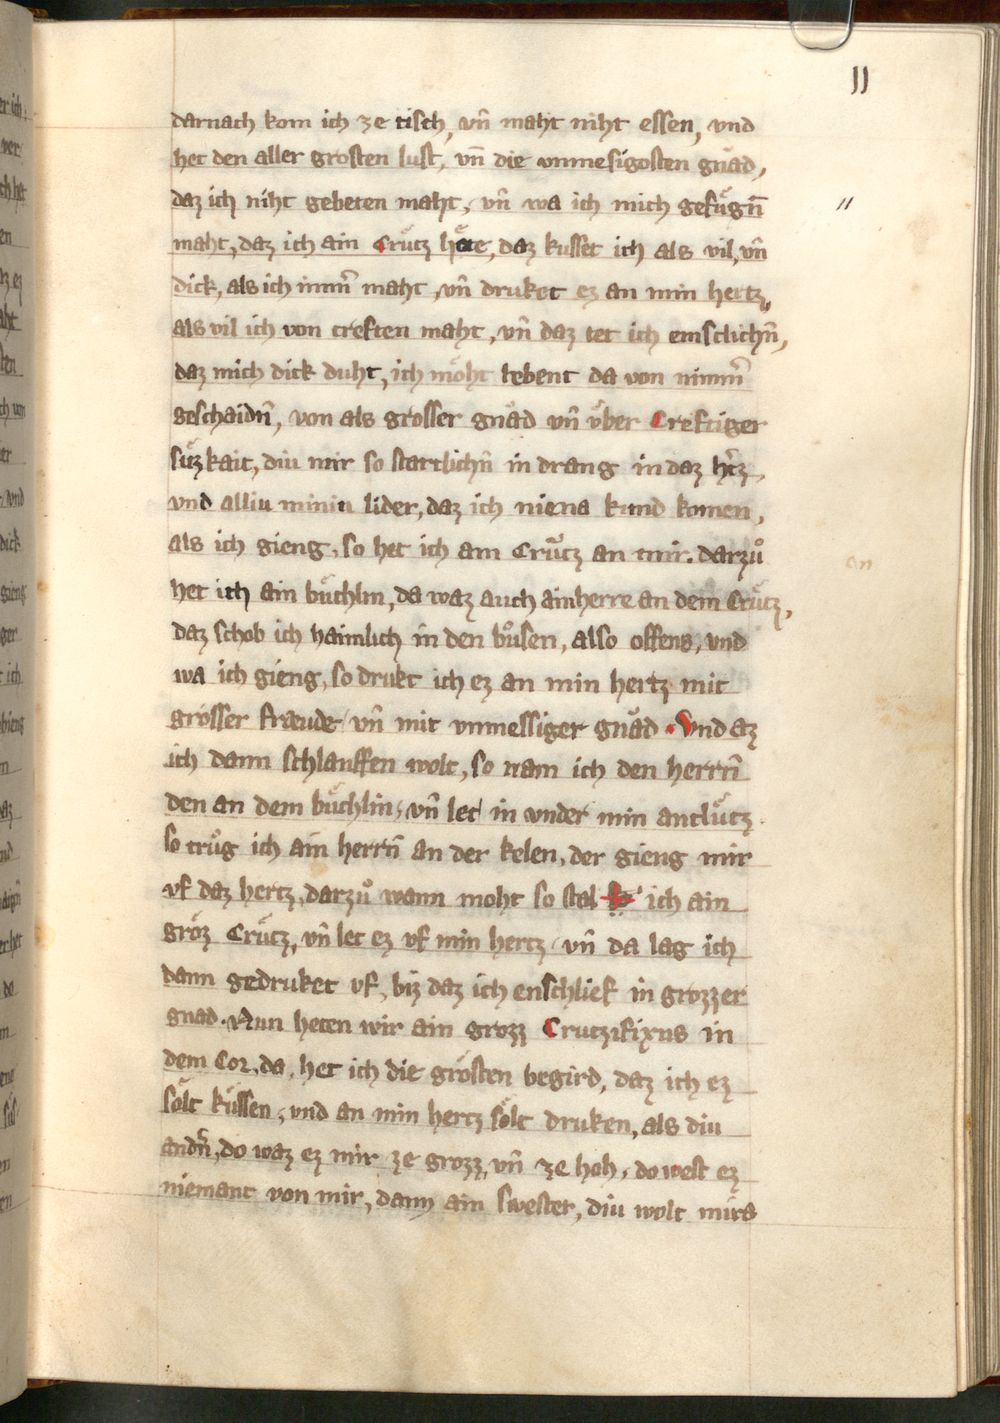 11
darnach kom ich ze tisch, vn̄ maht niht essen, vnd
het den aller grosten lust, vn̄ die vnmesigosten gnăd,
daz ich niht gebeten maht, vn̄ wa ich mich gefuͤgn̄
maht, daz ich ain Crŭtz hëte, daz kusset ich als vil, vn̄
dick, als ich imm̄ maht, vn̄ druket ez an min hertz,
als vil ich von creften maht, vn̄ daz tet ich emsclichn̄,
daz mich dick duht, ich moͤht lebent da von nimm̄
geschaidn̄, von als grosser gnăd vn̄ v̈ber Creftiger
suͤzkait, diu mir so starclichn̄ in drang in daz h̄tz,
vnd alliu miniu lider, daz ich niena kund komen,
als ich gieng, so het ich am Crŭtz an mir. darzuͦ
an
het ich ain buͤchlin, da waz auch ainherre an dem Crŭtz,
daz schob ich haimlich in den buͦsen, also offens, vnd
wa ich gieng, so drukt ich ez an min hertz mit
grosser fraeude vn̄ mit vnmessiger gnăd. Vnd az
ich dann schlauffen wolt, so nam ich den herrn̄
den an dem buͤchlin, vn̄ let in vnder min antluͤtz.
so truͦg ich ain herrn̄ an der kelen, der gieng mir
vf daz hertz, darzuͦ wann moht so stal ich ain
groͤz Crŭtz, vn̄ let ez vf min hertz vn̄ da lag ich
dann gedruket vf, biz daz ich enschlief in grozzer
gnad. Nun heten wir ain grozz Crutzifixus in
dem Cor, da, het ich die groͤsten begird, daz ich ez
soͤlt kuͤssen, vnd an min hertz soͤlt druken, als diu
andn̄, do waz ez mir ze grozz, vn̄ ze hoh, do west ez
niemant von mir, dann ain swester, diu wolt mirs